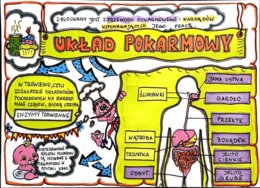 ZBUDOWANY JEST Z PRZEWODU POKARMOWEGO I NARZĄDÓW
WSPOMAGAJĄCYCH JEGO PRACĘ
UKŁAD POKARMOWY
W TRAWIENIU, CZYLI
ROZKŁADZIE SKŁADNIKÓW
POKARMOWYCH NA BARDZO
MAŁE CZĄSTKI, BIORĄ UDZIAŁ
ENZYMY TRAWIENNE
NIESTRAWIONE
RESZTKI POKARMU
SĄ USUWANE Z
ORGANIZMU W
POSTACI KAŁU
ŚLINIANKI
WĄTROBA
TRZUSTKA
ODBYT
JAMA USTNA
GARDŁO
PRZEŁYK
ŻOŁĄDEK
JELITO
CIENKIE
JELITO
GRUBE